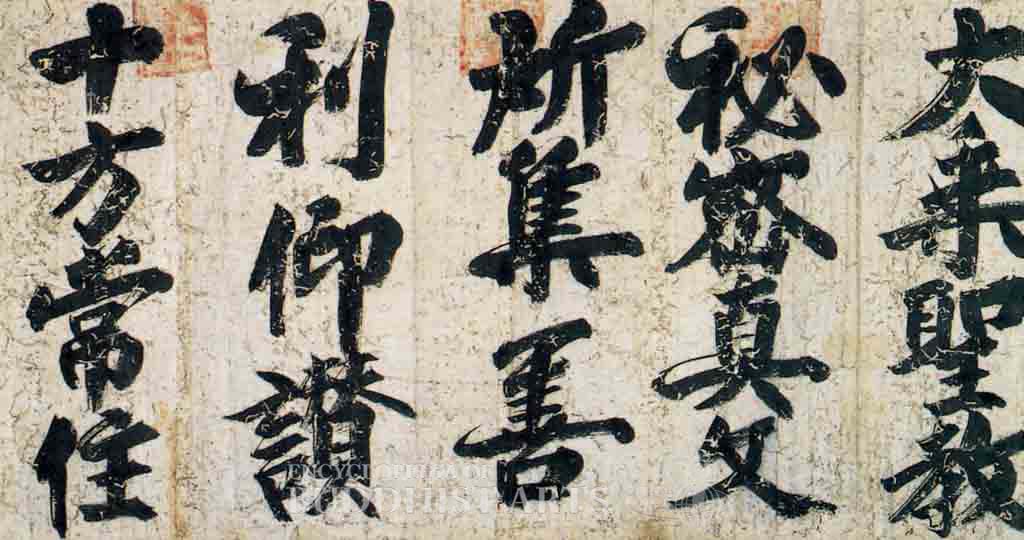 大乘聖教
秘密真文
所集善
利仰讃
十方常住
ENCYCLOPEDIA OF
BUDDHIST ARTS